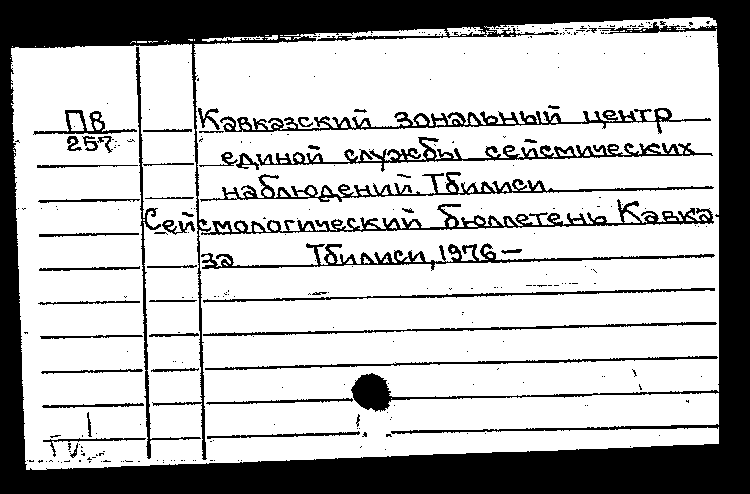 ПВ
257
Кавказский зональный центр
единой службы сейсмических
наблюдений. Тбилиси.
Сейсмологический бюллетень Кавка-
за Тбилиси, 1976 —